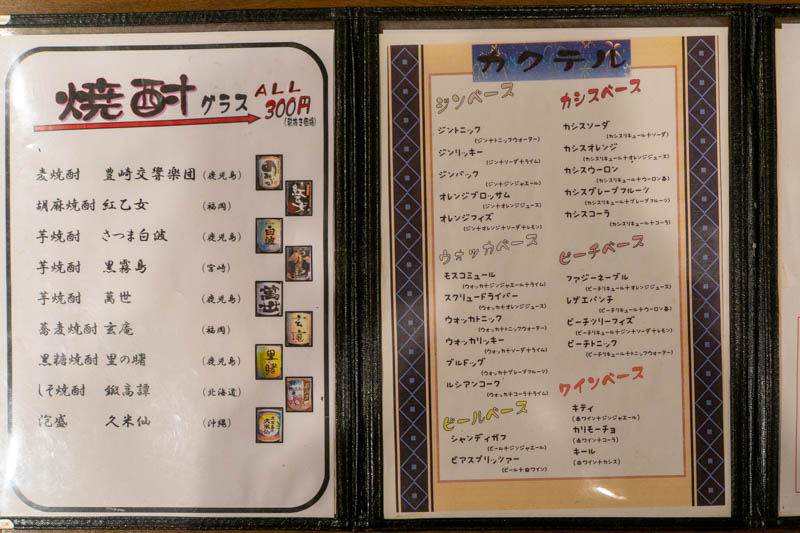 焼酎 グラス ALL 300円
(税抜き価格)
麦焼酎 豊崎交響楽団 (鹿児島)
胡麻焼酎 紅乙女 (福岡)
芋焼酎 さつま白波 (鹿児島)
芋焼酎 黒霧島 (宮崎)
芋焼酎 萬世 (鹿児島)
蕎麦焼酎 玄庵 (福岡)
黒糖焼酎 里の曙 (鹿児島)
しそ焼酎 鍛高譚 (北海道)
泡盛 久米仙 (沖縄)
カクテル
ジンベース
ジントニック
(ジン+トニックウォーター)
ジンリッキー
(ジン+ソーダ+ライム)
ジンバック
(ジン+ジンジャエール)
オレンジブロッサム
(ジン+オレンジジュース)
オレンジフィズ
(ジン+オレンジジュース+ソーダ+レモン)
ウォッカベース
モスコミュール
(ウォッカ+ジンジャエール+ライム)
スクリュードライバー
(ウォッカ+オレンジジュース)
ウォッカトニック
(ウォッカ+トニックウォーター)
ウォッカリッキー
(ウォッカ+ソーダ+ライム)
ブルドッグ
(ウォッカ+グレープフルーツ)
ルシアンコーク
(ウォッカ+コーラ+ライム)
ビールベース
シャンディガフ
(ビール+ジンジャエール)
ビアスプリッツァー
(ビール+白ワイン)
カシスベース
カシスソーダ
(カシスリキュール+ソーダ)
カシスオレンジ
(カシスリキュール+オレンジジュース)
カシスウーロン
(カシスリキュール+ウーロン茶)
カシスグレープフルーツ
(カシスリキュール+グレープフルーツ)
カシスコーラ
(カシスリキュール+コーラ)
ピーチベース
ファジーネーブル
(ピーチリキュール+オレンジジュース)
レゲエパンチ
(ピーチリキュール+ウーロン茶)
ピーチツリーフィズ
(ピーチリキュール+ジン+ソーダ+レモン)
ピーチトニック
(ピーチリキュール+トニックウォーター)
ワインベース
キティ
(赤ワイン+ジンジャエール)
カリモーチョ
(赤ワイン+コーラ)
キール
(白ワイン+カシス)